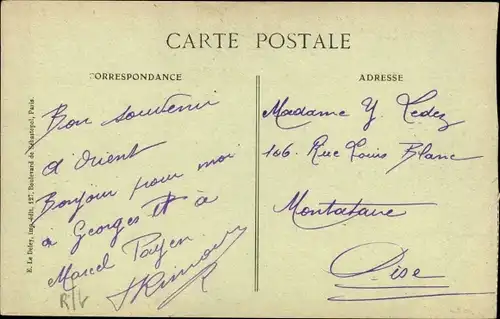 CARTE POSTALE
CORRESPONDANCE
ADRESSE
Bon souvenir
d'Orient
Bonjour pour moi
a Georges et à
Marcel Payen
R/V
Madame Y. Ledez
106. Rue Louis Blanc
Montataire
Oise
E. Le Deley, imp.-édit. 127, Boulevard de Sébastopol, Paris.